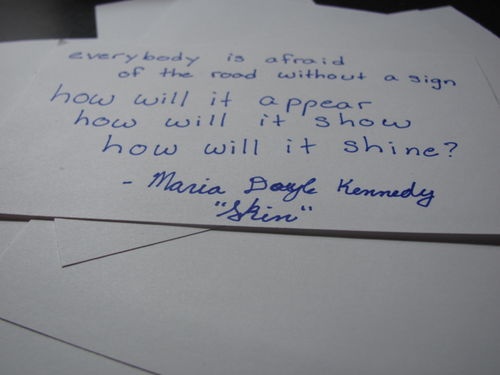 everybody is afraid
of the road without a sign
how will it appear
how will it show
how will it shine?
- Maria Doyle Kennedy
"Skin"